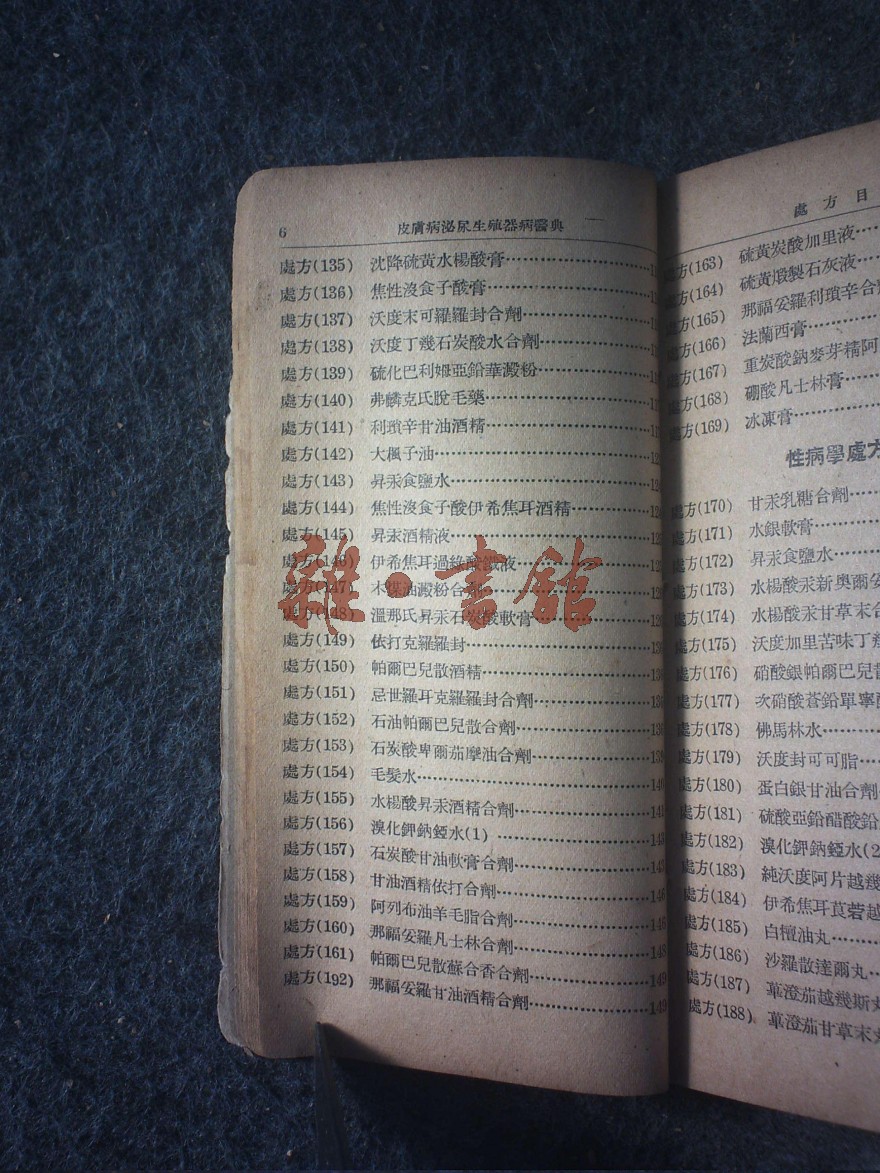 6 皮膚病泌尿生殖器病醫典
處方(135) 沈降硫黃水楊酸膏
處方(136) 焦性沒食子酸膏
處方(137) 沃度末可羅羅封合劑
處方(138) 沃度丁幾石炭酸水合劑
處方(139) 硫化巴利姆亞鉛華澱粉
處方(140) 弗麟克氏脫毛藥
處方(141) 利瑣辛甘油酒精
處方(142) 大楓子油
處方(143) 昇汞食鹽水
處方(144) 焦性沒食子酸伊希焦耳酒精
處方(145) 昇汞酒精液
處方(146) 伊希焦耳過綠酸鐵液
處方(147) 木煤油澱粉合劑
處方(148) 溫那氏昇汞石炭酸軟膏
處方(149) 依打克羅羅封
處方(150) 帕爾巴兒散酒精
處方(151) 忌世羅耳克羅羅封合劑
處方(152) 石油帕爾巴兒散合劑
處方(153) 石炭酸卑爾茄摩油合劑
處方(154) 毛髮水
處方(155) 水楊酸昇汞酒精合劑
處方(156) 溴化鉀鈉錏水(1)
處方(157) 石炭酸甘油軟膏合劑
處方(158) 甘油酒精依打合劑 146
處方(159) 阿列布油羊毛脂合劑 146
處方(160) 那福安羅凡士林合劑 148
處方(161) 帕爾巴兒散蘇合香合劑 149
處方(192) 那福安羅甘油酒精合劑 149
處方目
處方(163) 硫黃炭酸加里液
處方(164) 硫黃煅製石灰液
處方(165) 那福安羅利瑣辛合劑
處方(166) 法蘭西膏
處方(167) 重炭酸鈉麥芽精阿
處方(168) 硼酸凡士林膏
處方(169) 冰凍膏
性病學處方
處方(170) 甘汞乳糖合劑
處方(171) 水銀軟膏
處方(172) 昇汞食鹽水
處方(173) 水楊酸汞新奧爾安
處方(174) 水楊酸汞甘草末合
處方(175) 沃度加里苦味丁幾
處方(176) 硝酸銀帕爾巴兒散
處方(177) 次硝酸蒼鉛單寧酸
處方(178) 佛馬林水
處方(179) 沃度封可可脂
處方(180) 蛋白銀甘油合劑
處方(181) 硫酸亞鉛醋酸鉛
處方(182) 溴化鉀鈉錏水(2
處方(183) 純沃度阿片越幾
處方(184) 伊希焦耳莨菪越
處方(185) 白檀油丸
處方(186) 沙羅散達爾丸
處方(187) 蓽澄茄越幾斯丸
處方(188) 蓽澄茄甘草末丸
雜·書館